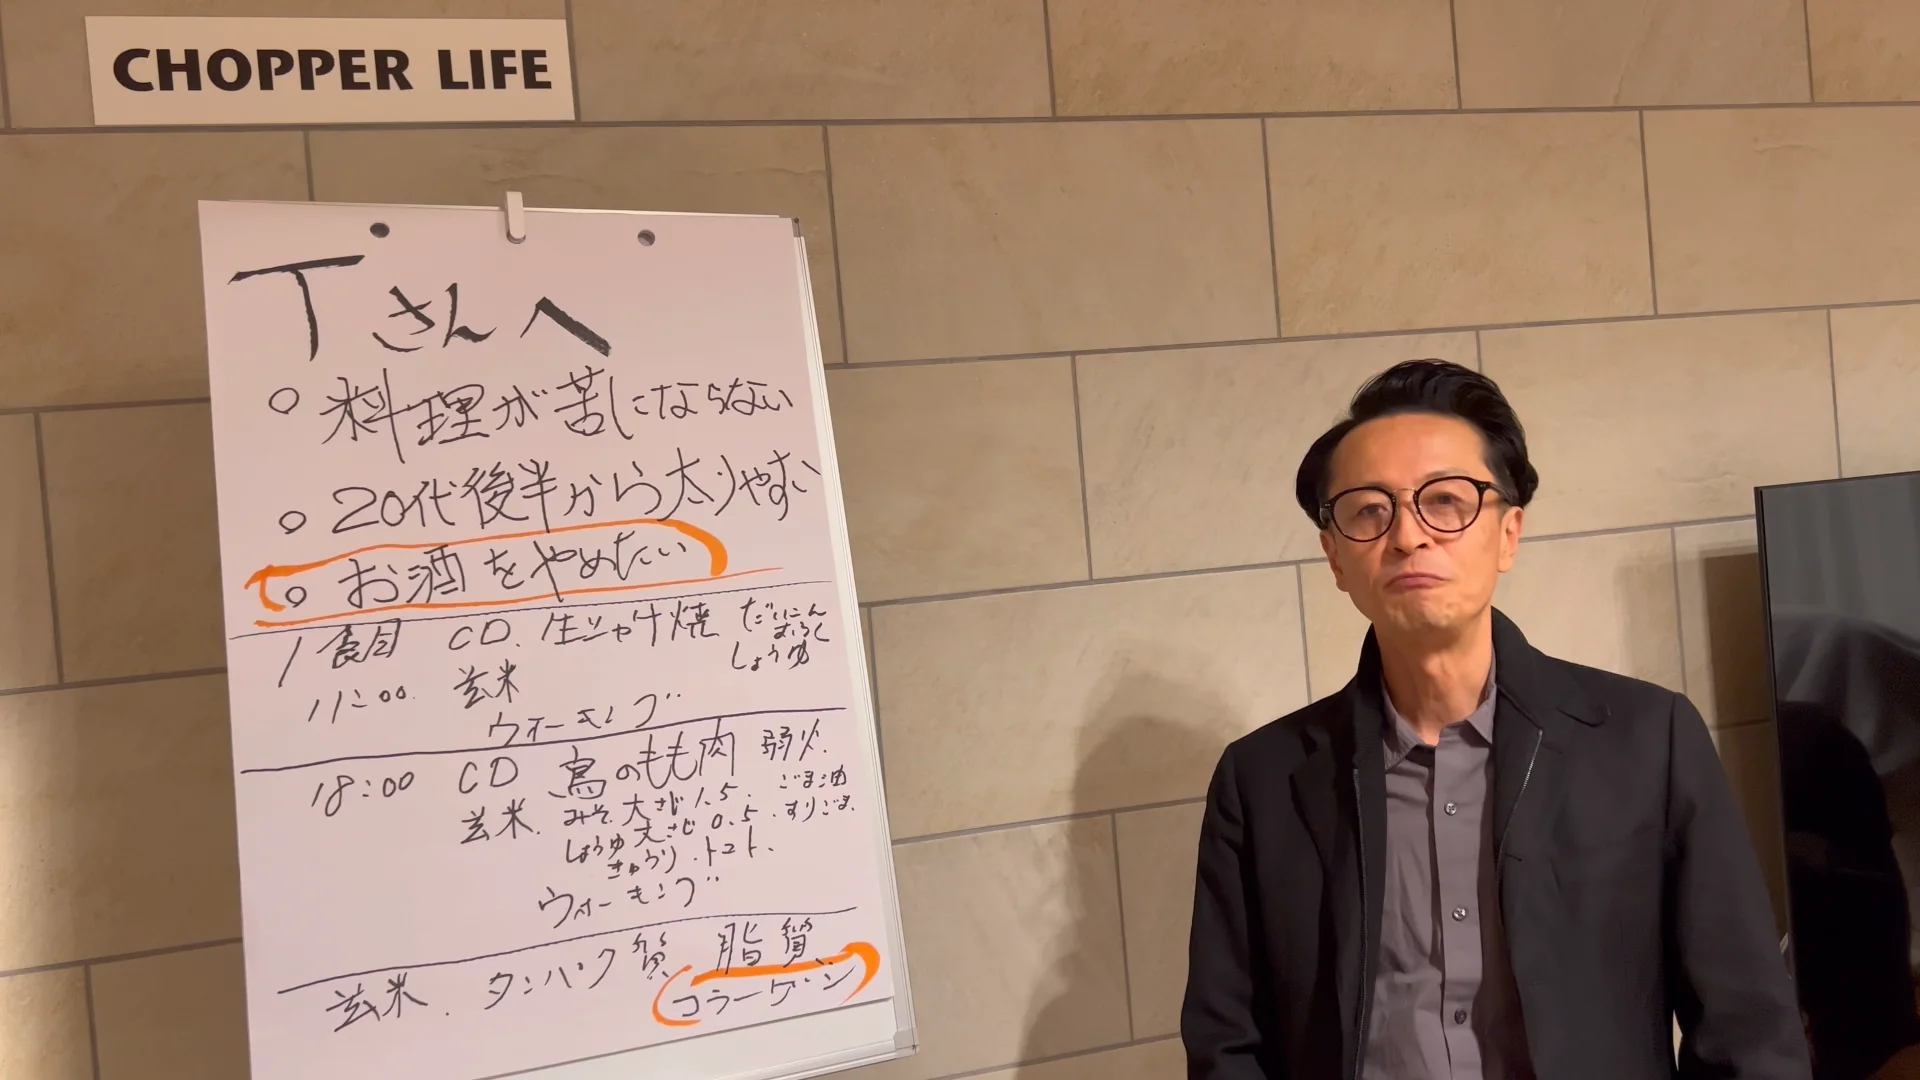 CHOPPER LIFE
Tさんへ
○ 料理が苦にならない
○ 20代後半から太りやすい
○ お酒をやめたい
1食目 CD. 生シャケ焼 だいこん
おろし
しょうゆ
11:00. 玄米
ウォーキング
18:00 CD 鳥のもも肉 弱火.
玄米. みそ. 大さじ1.5. ごま油
しょうゆ 大さじ0.5. すりごま.
きゅうり. トマト.
ウォーキング
玄米. タンパク質 脂質
コラーゲン